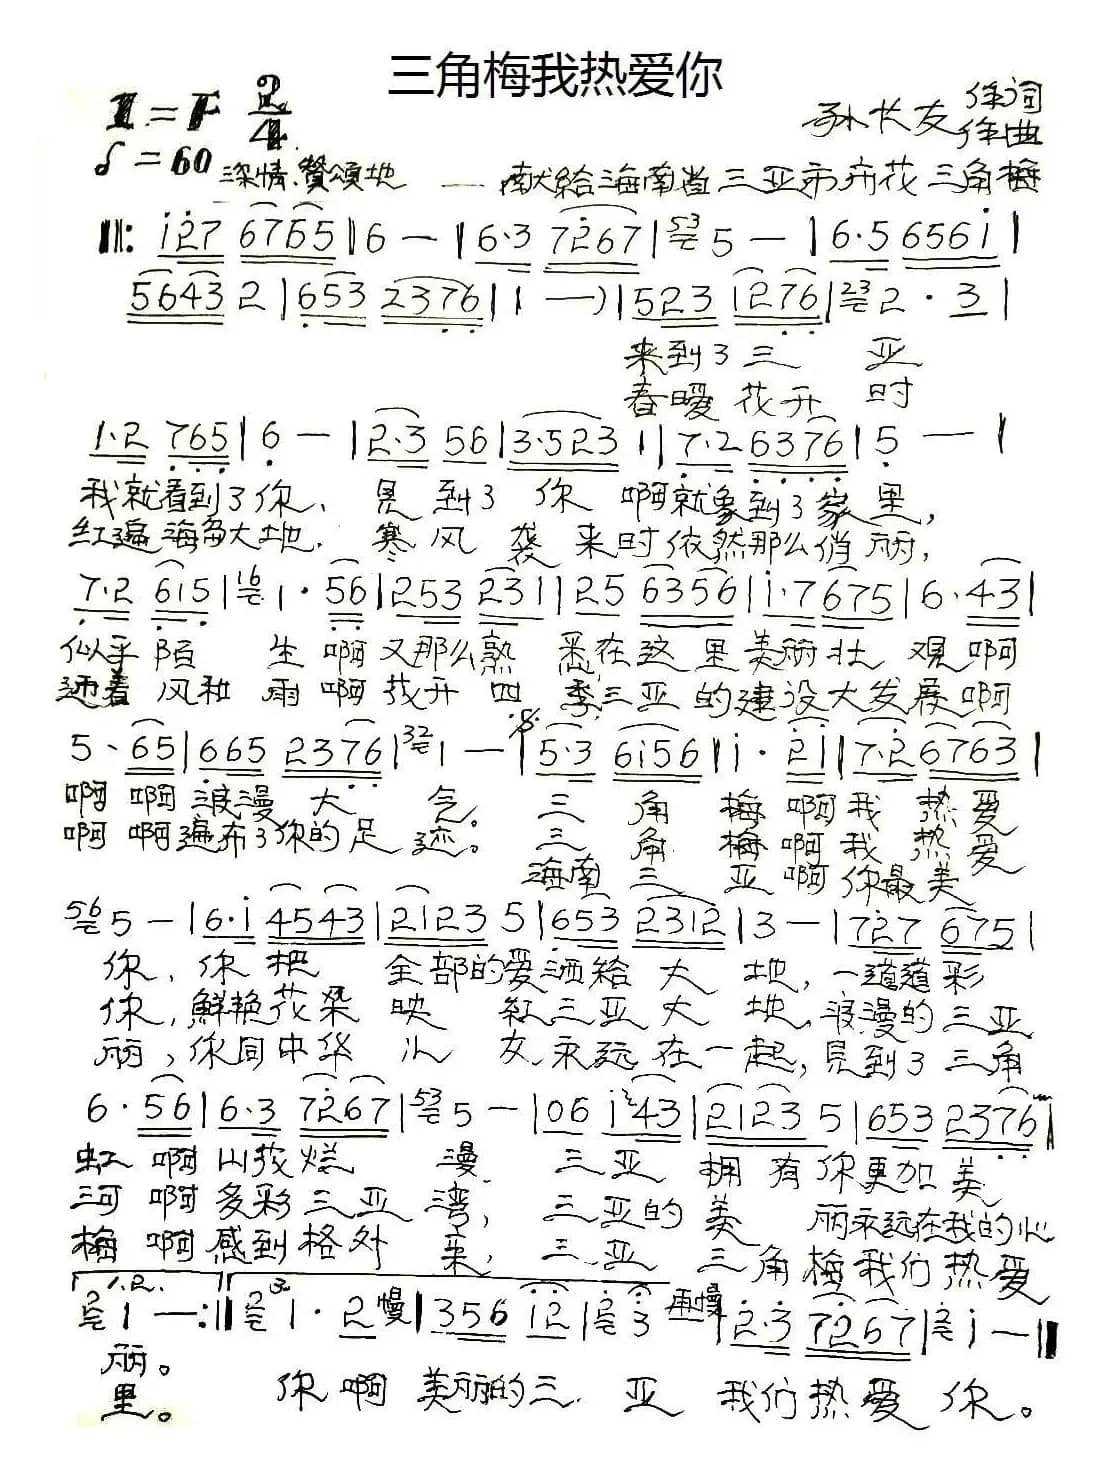 三角梅我热爱你
1=F 2/4
♩=60
孙长友 作词
作曲
深情、赞颂地 —— 献给海南省三亚市市花三角梅
‖: i27 6765 | 6 — | 6·3 7267 | 53 5 — | 6·5 656i |
5643 2 | 653 2376 | 1 —) | 523 1276 | 23 2· 3 |
来到了三 亚
春暖花开 时
1·2 765 | 6 — | 2·3 56 | 3·523 1 | 7·2 6376 | 5 — |
我就看到了你、見到了你啊就象到了家里,
红遍海岛大地. 寒风袭来时依然那么俏丽,
7·2 615 | 16 1· 56 | 253 231 | 25 6356 | i·7 675 | 6·43 |
似乎陌 生啊又那么熟 悉在这里美丽壮 观啊
迊着风和雨啊花开四 季三亚的建设大发展啊
5· 65 | 665 2376 | 32 1 — | 5·3 6156 | i· 2i | 7·2 6763 |
啊 啊浪漫大 气。 三 角 梅啊我 热爱
啊 啊遍布了你的足 迹。 三 角 梅啊我 热爱
海南三 亚啊你最美
56 5 — | 6·i 4543 | 2123 5 | 653 2312 | 3 — | 727 675 |
你,你把 全部的爱洒给大 地,一道道彩
你,鲜艳花朵映 红三亚大 地,浪漫的三亚
丽,你同中华儿女永远在一起,見到了三角
6·56 | 6·3 7267 | 53 5 — | 06 i43 | 2123 5 | 653 2376 |
虹 啊山花烂 漫. 三亚 拥有你更加美
河 啊多彩三亚湾, 三亚的美 丽永远在我的心
梅 啊感到格外 亲, 三亚 三角梅我们热爱
1.2. 3.
2 1 — :‖ 2 1· 2 慢 | 356 i2 | 2 3 再慢 | 2·3 7267 | 2 i — ‖
丽。
里。 你啊 美丽的三 亚 我们热爱 你。